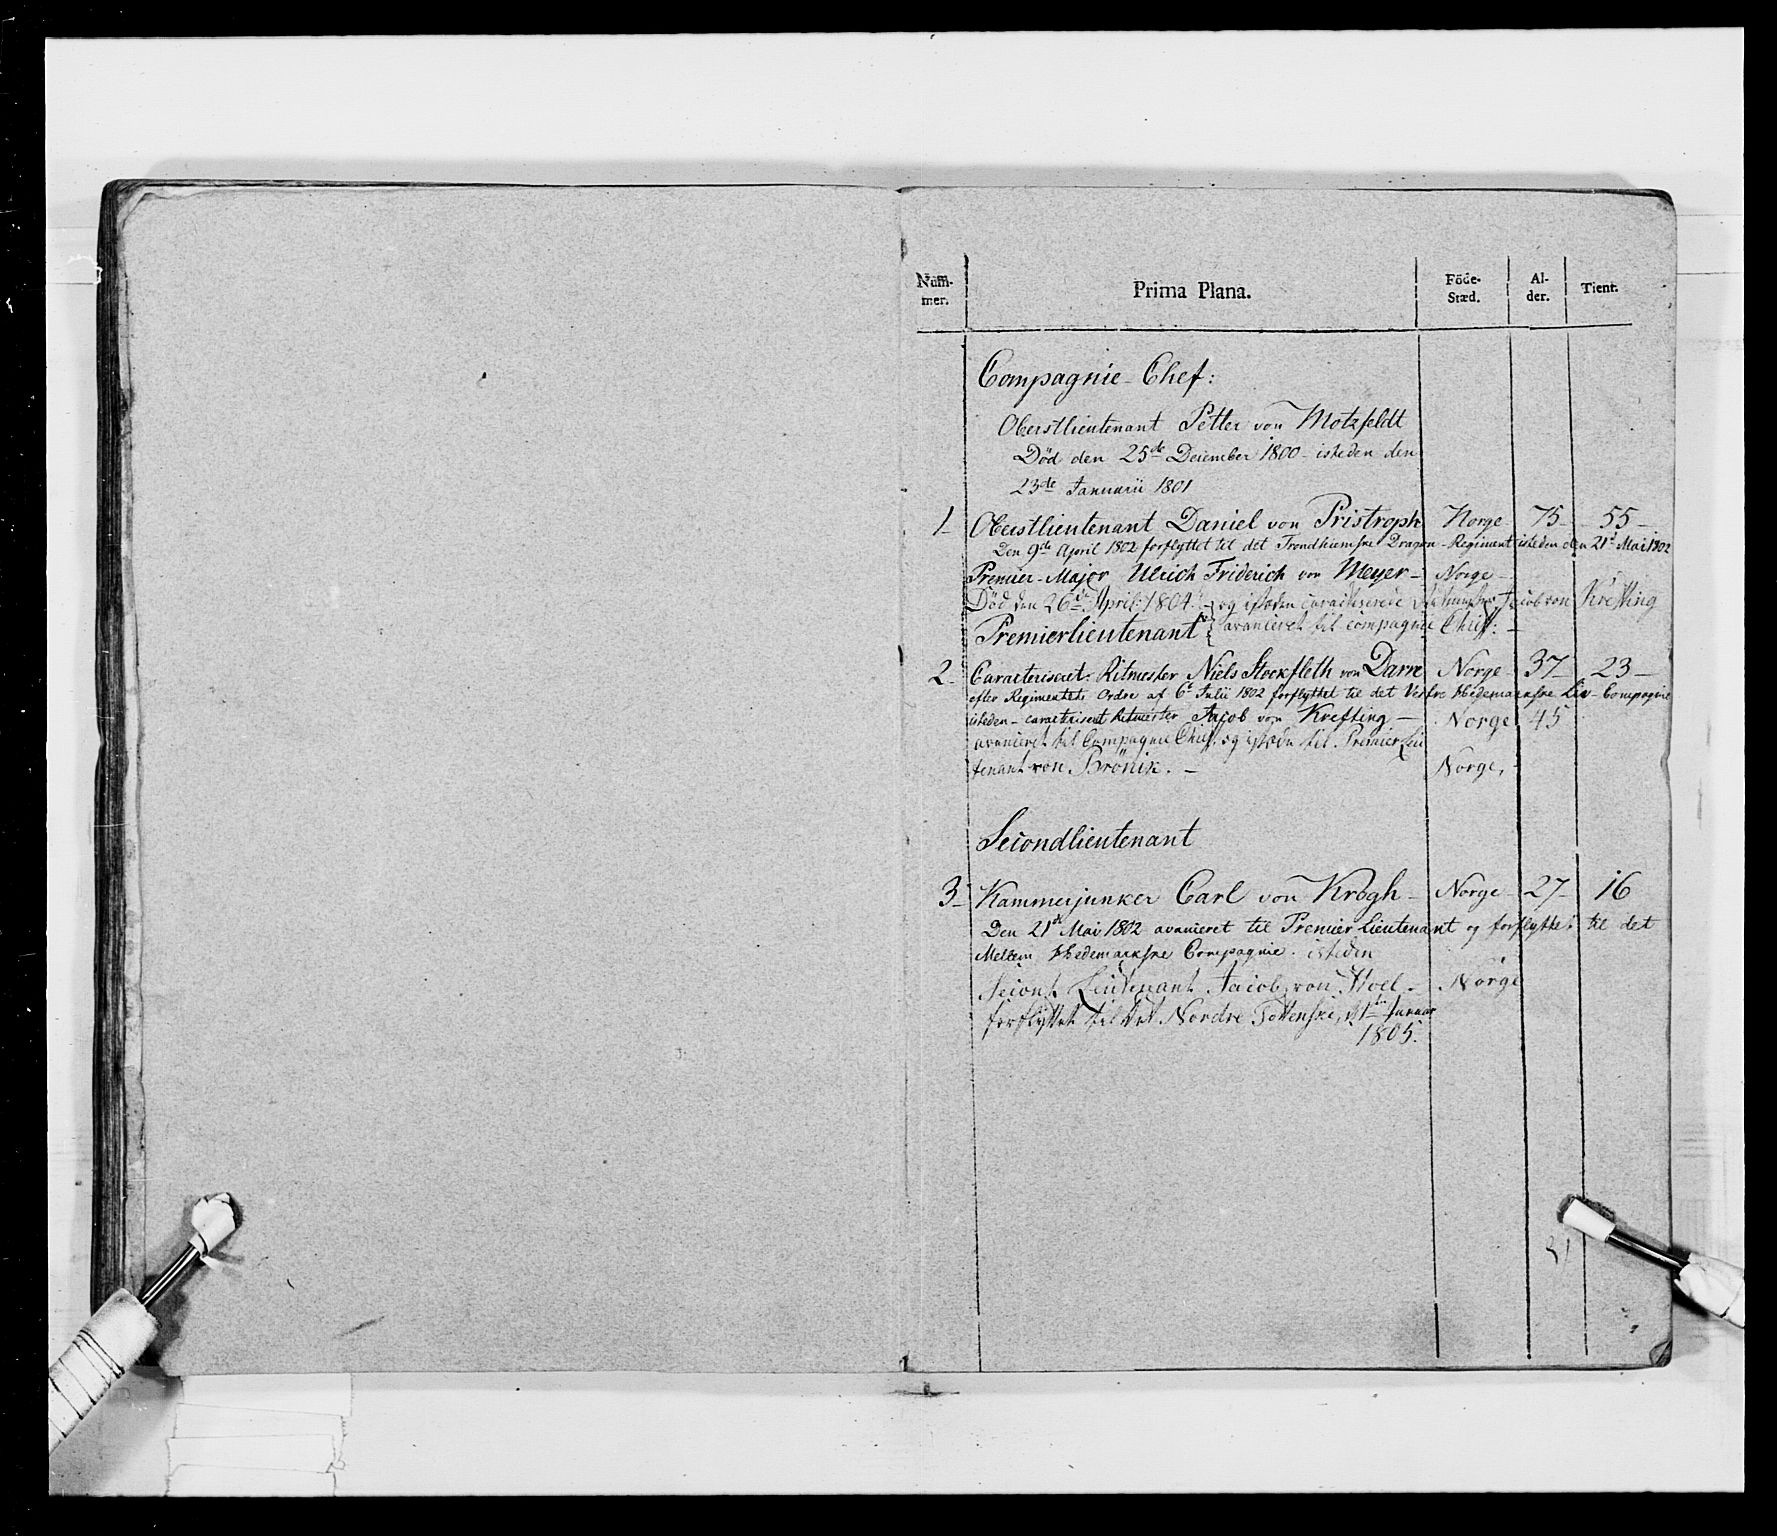 Num-
mer.
Prima Plana.
Föde-
Stæd.
Al-
der.
Tient.
Compagnie-Chef:
Oberstlieutenant Petter von Motzfeldt
Död den 25de December 1800 - isteden den
23de Januarii 1801
1 Oberstlieutenant Daniel von Pristroph Norge 75 55
Den 9de April 1802 forflyttet til det Trondhiemske Dragon-Regiment isteden den 21t Mai 1802
Premier-Major Ulrich Friderich von Meyer - Norge -
Död den 26de April: 1804. og isteden caracteriserede Ritmester Jacob von Krefting
Premierlieutenant avanceret til compagnie Chief: -
2 Caracteriseret: Ritmester Niels Stockfleth von Darre Norge 37 23
efter Regimentets Ordre af 6t Julii 1802 forflyttet til det Vestre Hedemarkske Liv-Compagnie
isteden - caracteriseret Ritmester Jacob von Krefting - Norge 45
avanceret til Compagnie Chief. og isteden til Premier Lieu
tenant von Brönik. - Norge,
Secondlieutenant
3 Kammerjunker Carl von Krogh - Norge - 27 - 16
Den 21t Mai 1802 avanceret til Premier Lieutenant og forflyttet til det
Mellem Hedemarkske Compagnie. isteden
Secont Lieutenant Jacob von Hoel - Norge
forflyttet til det Nordre Tottenske, d 1te Januar
1805.